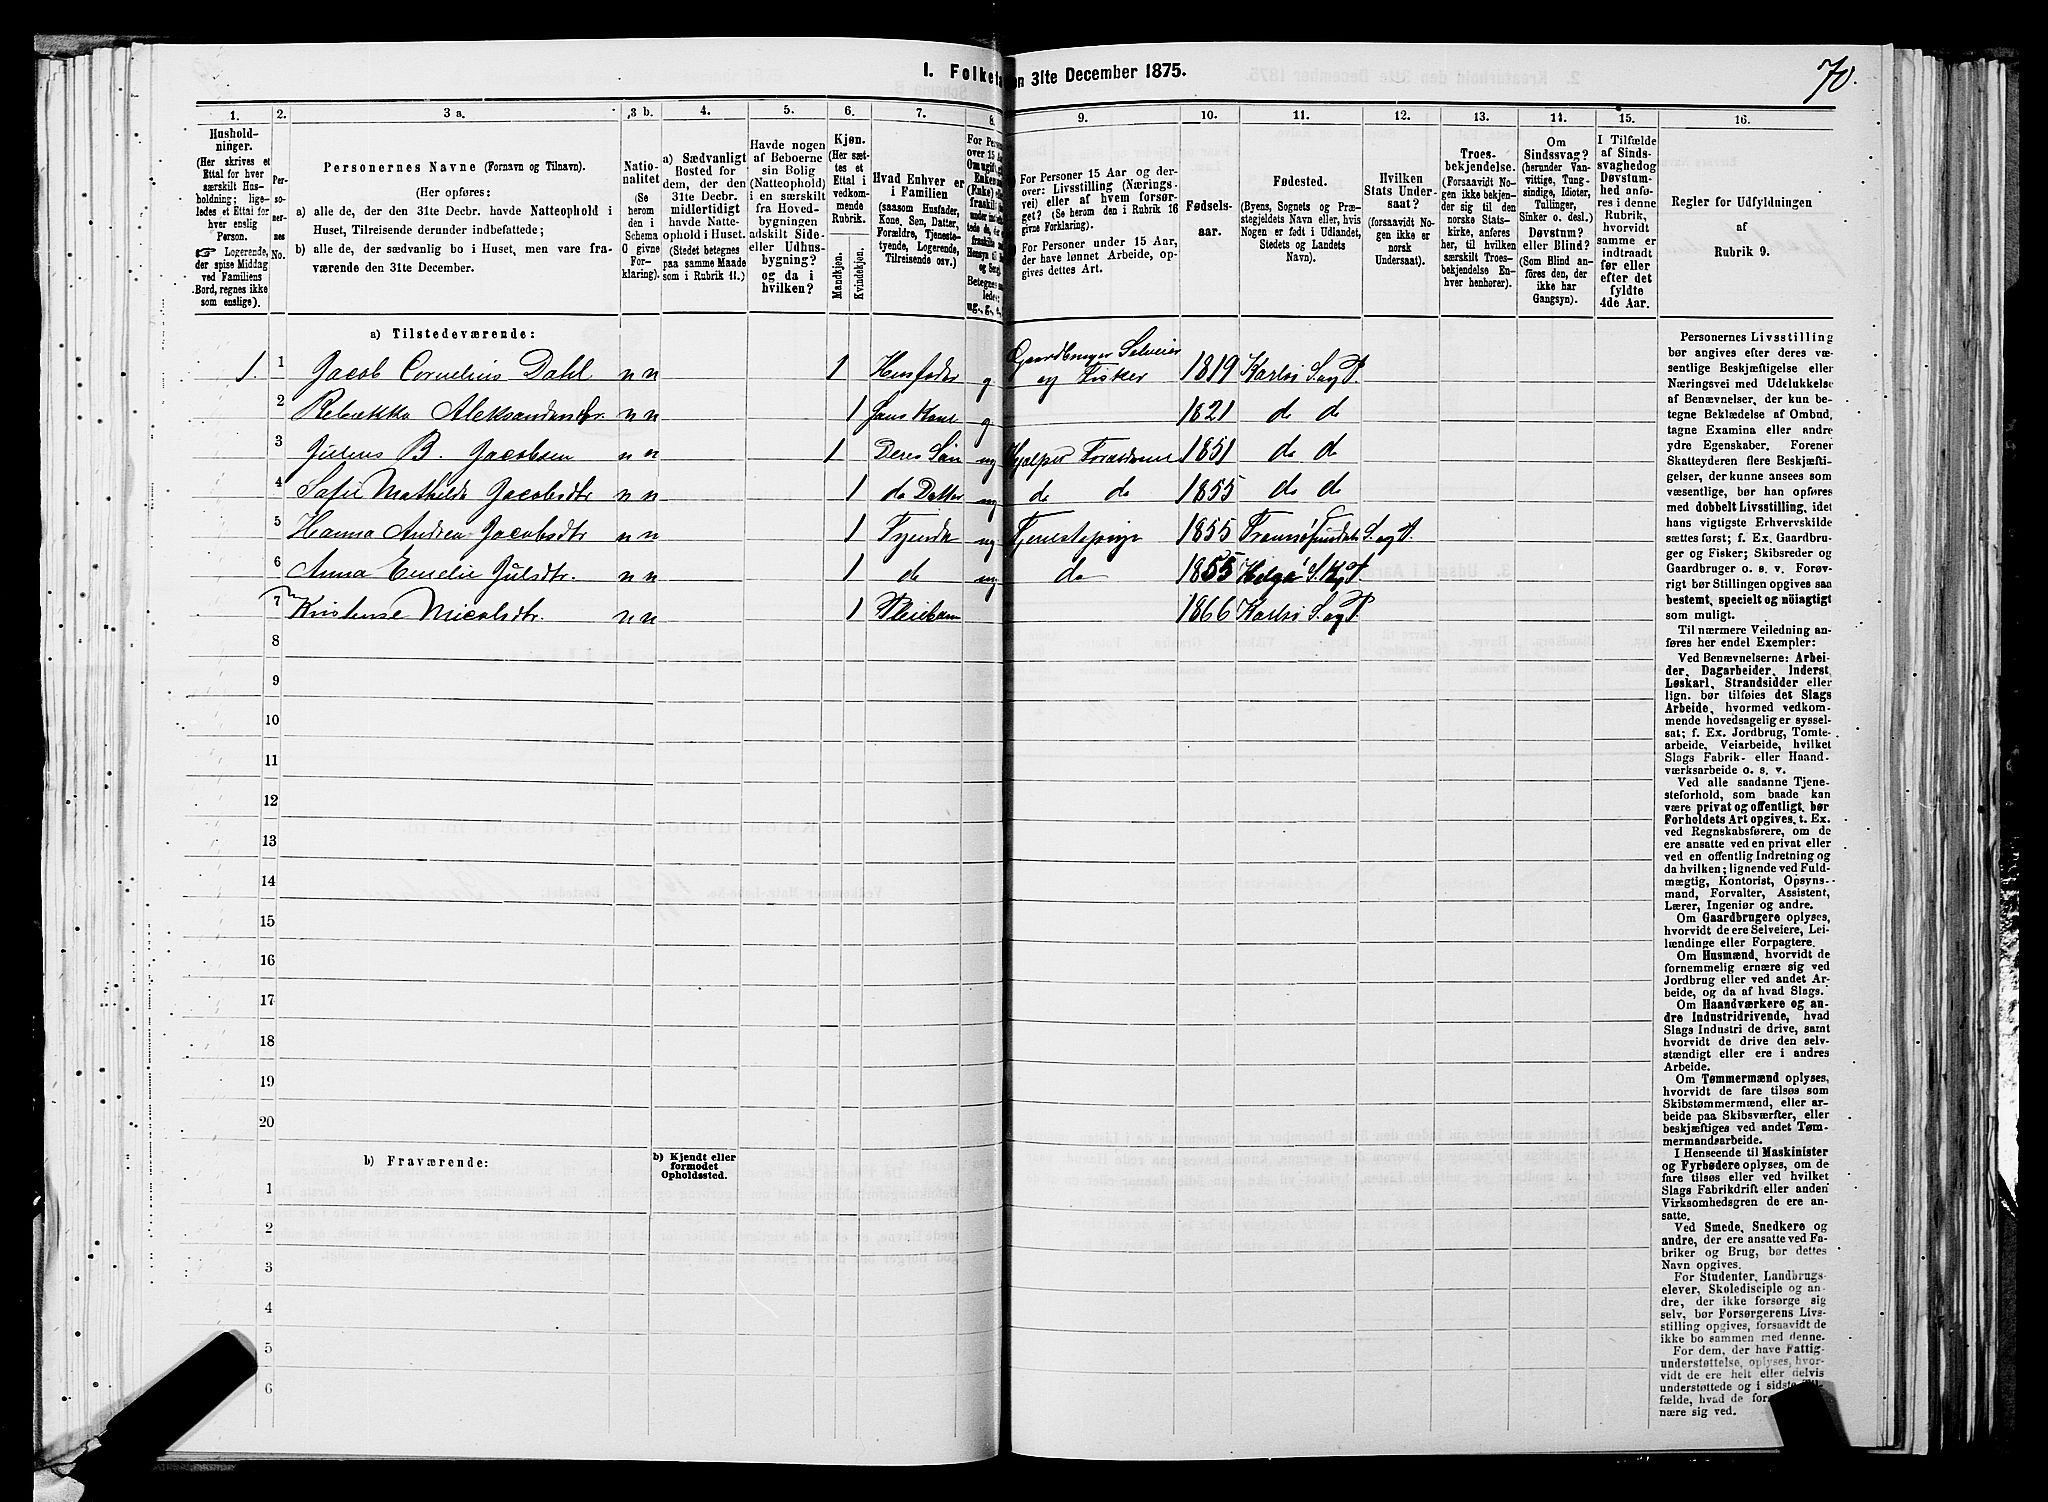 70.
I. Folketa on 31te December 1875.
1. 2. 3 a. 3 b. 4. 5. 6. 7. 8. 9. 10. 11. 12. 13. 14. 15. 16.
Hushold-
ninger.
(Her skrives et
Ettal for hver
særskilt Hus-
holdning; lige-
ledes et Ettal for
hver enslig
Person.
☞ Logerende,
der spise Middag
ved Familiens
Bord, regnes ikke
som enslige).
Per-
so-
ner-
nes
No.
Personernes Navne (Fornavn og Tilnavn).
(Her opføres:
a) alle de, der den 31te Decbr. havde Natteophold i
Huset, Tilreisende derunder indbefattede;
b) alle de, der sædvanlig bo i Huset, men vare fra-
værende den 31te December.
Natio-
nalitet
(Se
herom
den i
Schema
O givne
For-
klaring).
a) Sædvanligt
Bosted for
dem, der den
31te Decbr.
midlertidigt
havde Natte-
ophold i Huset.
(Stedet betegnes
paa samme Maade
som i Rubrik 11.)
Havde nogen
af Beboerne
sin Bolig
(Natteophold)
i en særskilt
fra Hoved-
bygningen
adskilt Side-
eller Udhus-
bygning?
og da i
hvilken?
Kjøn.
(Her sæt-
tes et
Ettal i
vedkom-
mende
Rubrik.
Mandkjøn.
Kvindekjøn.
Hvad Enhver er
i Familien
(saasom Husfader,
Kone, Søn, Datter,
Forældre, Tjeneste-
tyende, Logerende,
Tilreisende osv.)
For Personer 15 Aar og der-
over: Livsstilling (Nærings-
vei) eller af hvem forsør-
get? (Se herom den i Rubrik 16
givne Forklaring).
For Personer under 15 Aar,
der have lønnet Arbeide, op-
gives dettes Art.
Fødsels-
aar.
Fødested.
(Byens, Sognets og Præ-
stegjeldets Navn eller, hvis
Nogen er født i Udlandet,
Stedets og Landets
Navn).
Hvilken
Stats Under-
saat?
(forsaavidt No-
gen ikke er
norsk
Undersaat).
Troes-
bekjendelse.
(Forsaavidt No-
gen ikke bekjen-
der sig til den
norske Stats-
kirke, anføres
her, til hvilken
særskilt Troes-
bekjendelse En-
hver henhører).
Om
Sindssvag?
(herunder Van-
vittige, Tung-
sindige, Idioter,
Tullinger,
Sinker o. desl.)
Døvstum?
eller Blind?
(Som Blind an-
føres den, der
ikke har
Gangsyn).
I Tilfælde
af Sinds-
svaghed og
Døvstum-
hed anfø-
res i denne
Rubrik,
hvorvidt
samme er
indtraadt
før eller
efter det
fyldte
4de Aar.
Regler for Udfyldningen
af
Rubrik 9.
a) Tilstedeværende:
1. 1 Jacob Cornelius Dahl n n 1 Husfader g Gaardbruger Selveier og Fisker 1819 Karlsø S. og P.
2 Rebekka Aleksandersdr. n n 1 Hans Kone g 1821 do do
3 Julius B. Jacobsen n n 1 Deres Søn ug Hjelper Forældrene 1851 do do
4 Sofie Mathilde Jacobsdtr n n 1 do Datter ug do do 1855 do do
5 Hanna Andrea Jacobsdtr n n 1 Tyende ug Tjenestepige 1855 Tromsøsundets S. og P.
6 Anna Emelie Julsdtr. n n 1 do ug do 1855 Helgø S. K. P.
7 Kristense Nicolsdtr. n n 1 Pleiebarn 1866 Karlsø S. og P.
8
9
10
11
12
13
14
15
16
17
18
19
20
b) Fraværende:
b) Kjendt eller
formodet
Opholdssted.
1
2
3
4
5
6
Personernes Livsstilling
bør angives efter deres væ-
sentlige Beskjæftigelse eller
Næringsvei med Udelukkelse
af Benævnelser, der kun be-
tegne Beklædelse af Ombud,
tagne Examina eller andre
ydre Egenskaber. Forener
Skatteyderen flere Beskjæfti-
gelser, der kunne ansees som
væsentlige, bør han opføres
med dobbelt Livsstilling, idet
hans vigtigste Erhvervskilde
sættes først; f. Ex. Gaardbru-
ger og Fisker; Skibsreder og
Gaardbruger o. s. v. Forøv-
rigt bør Stillingen opgives saa
bestemt, specielt og nøiagtigt
som muligt.
Til nærmere Veiledning an-
føres her endel Exempler:
Ved Benævnelserne: Arbei-
der, Dagarbeider, Inderst,
Løskarl, Strandsidder eller
lign. bør tilføies det Slags
Arbeide, hvormed vedkom-
mende hovedsagelig er syssel-
sat; f. Ex. Jordbrug, Tomte-
arbeide, Veiarbeide, hvilket
Slags Fabrik- eller Haand-
værksarbeide o. s. v.
Ved alle saadanne Tjene-
steforhold, som baade kan
være privat og offentligt, bør
Forholdets Art opgives, t. Ex.
ved Regnskabsførere, om de
ere ansatte ved en privat eller
ved en offentlig Indretning og
da hvilken; lignende ved Fuld-
mægtig, Kontorist, Opsyns-
mand, Forvalter, Assistent,
Lærer, Ingeniør og andre.
Om Gaardbrugere oplyses,
hvorvidt de ere Selveiere, Lei-
lændinge eller Forpagtere.
Om Husmænd, hvorvidt de
fornemmelig ernære sig ved
Jordbrug eller ved andet Ar-
beide, og da af hvad Slags.
Om Haandværkere og an-
dre Industridrivende, hvad
Slags Industri de drive, samt
hvorvidt de drive den selv-
stændigt eller ere i andres
Arbeide.
Om Tømmermænd oplyses,
hvorvidt de fare tilsøs som
Skibstømmermænd, eller ar-
beide paa Skibsværfter, eller
beskjæftiges ved andet Tøm-
mermandsarbeide.
I Henseende til Maskinister
og Fyrbødere oplyses, om de
fare tilsøs eller ved hvilket
Slags Fabrikdrift eller anden
Virksomhedsgren de ere an-
satte.
Ved Smede, Snedkere og
andre, der ere ansatte ved Fa-
briker og Brug, bør dettes
Navn opgives.
For Studenter, Landbrugs-
elever, Skoledisciple og an-
dre, der ikke forsørge sig
selv, bør Forsørgerens Livs-
stilling opgives, forsaavidt de
ikke bo sammen med denne.
For dem, der have Fattig-
understøttelse, oplyses, hvor-
vidt de ere helt eller delvis
understøttede og i sidste
fælde, hvad de
nære sig ved.